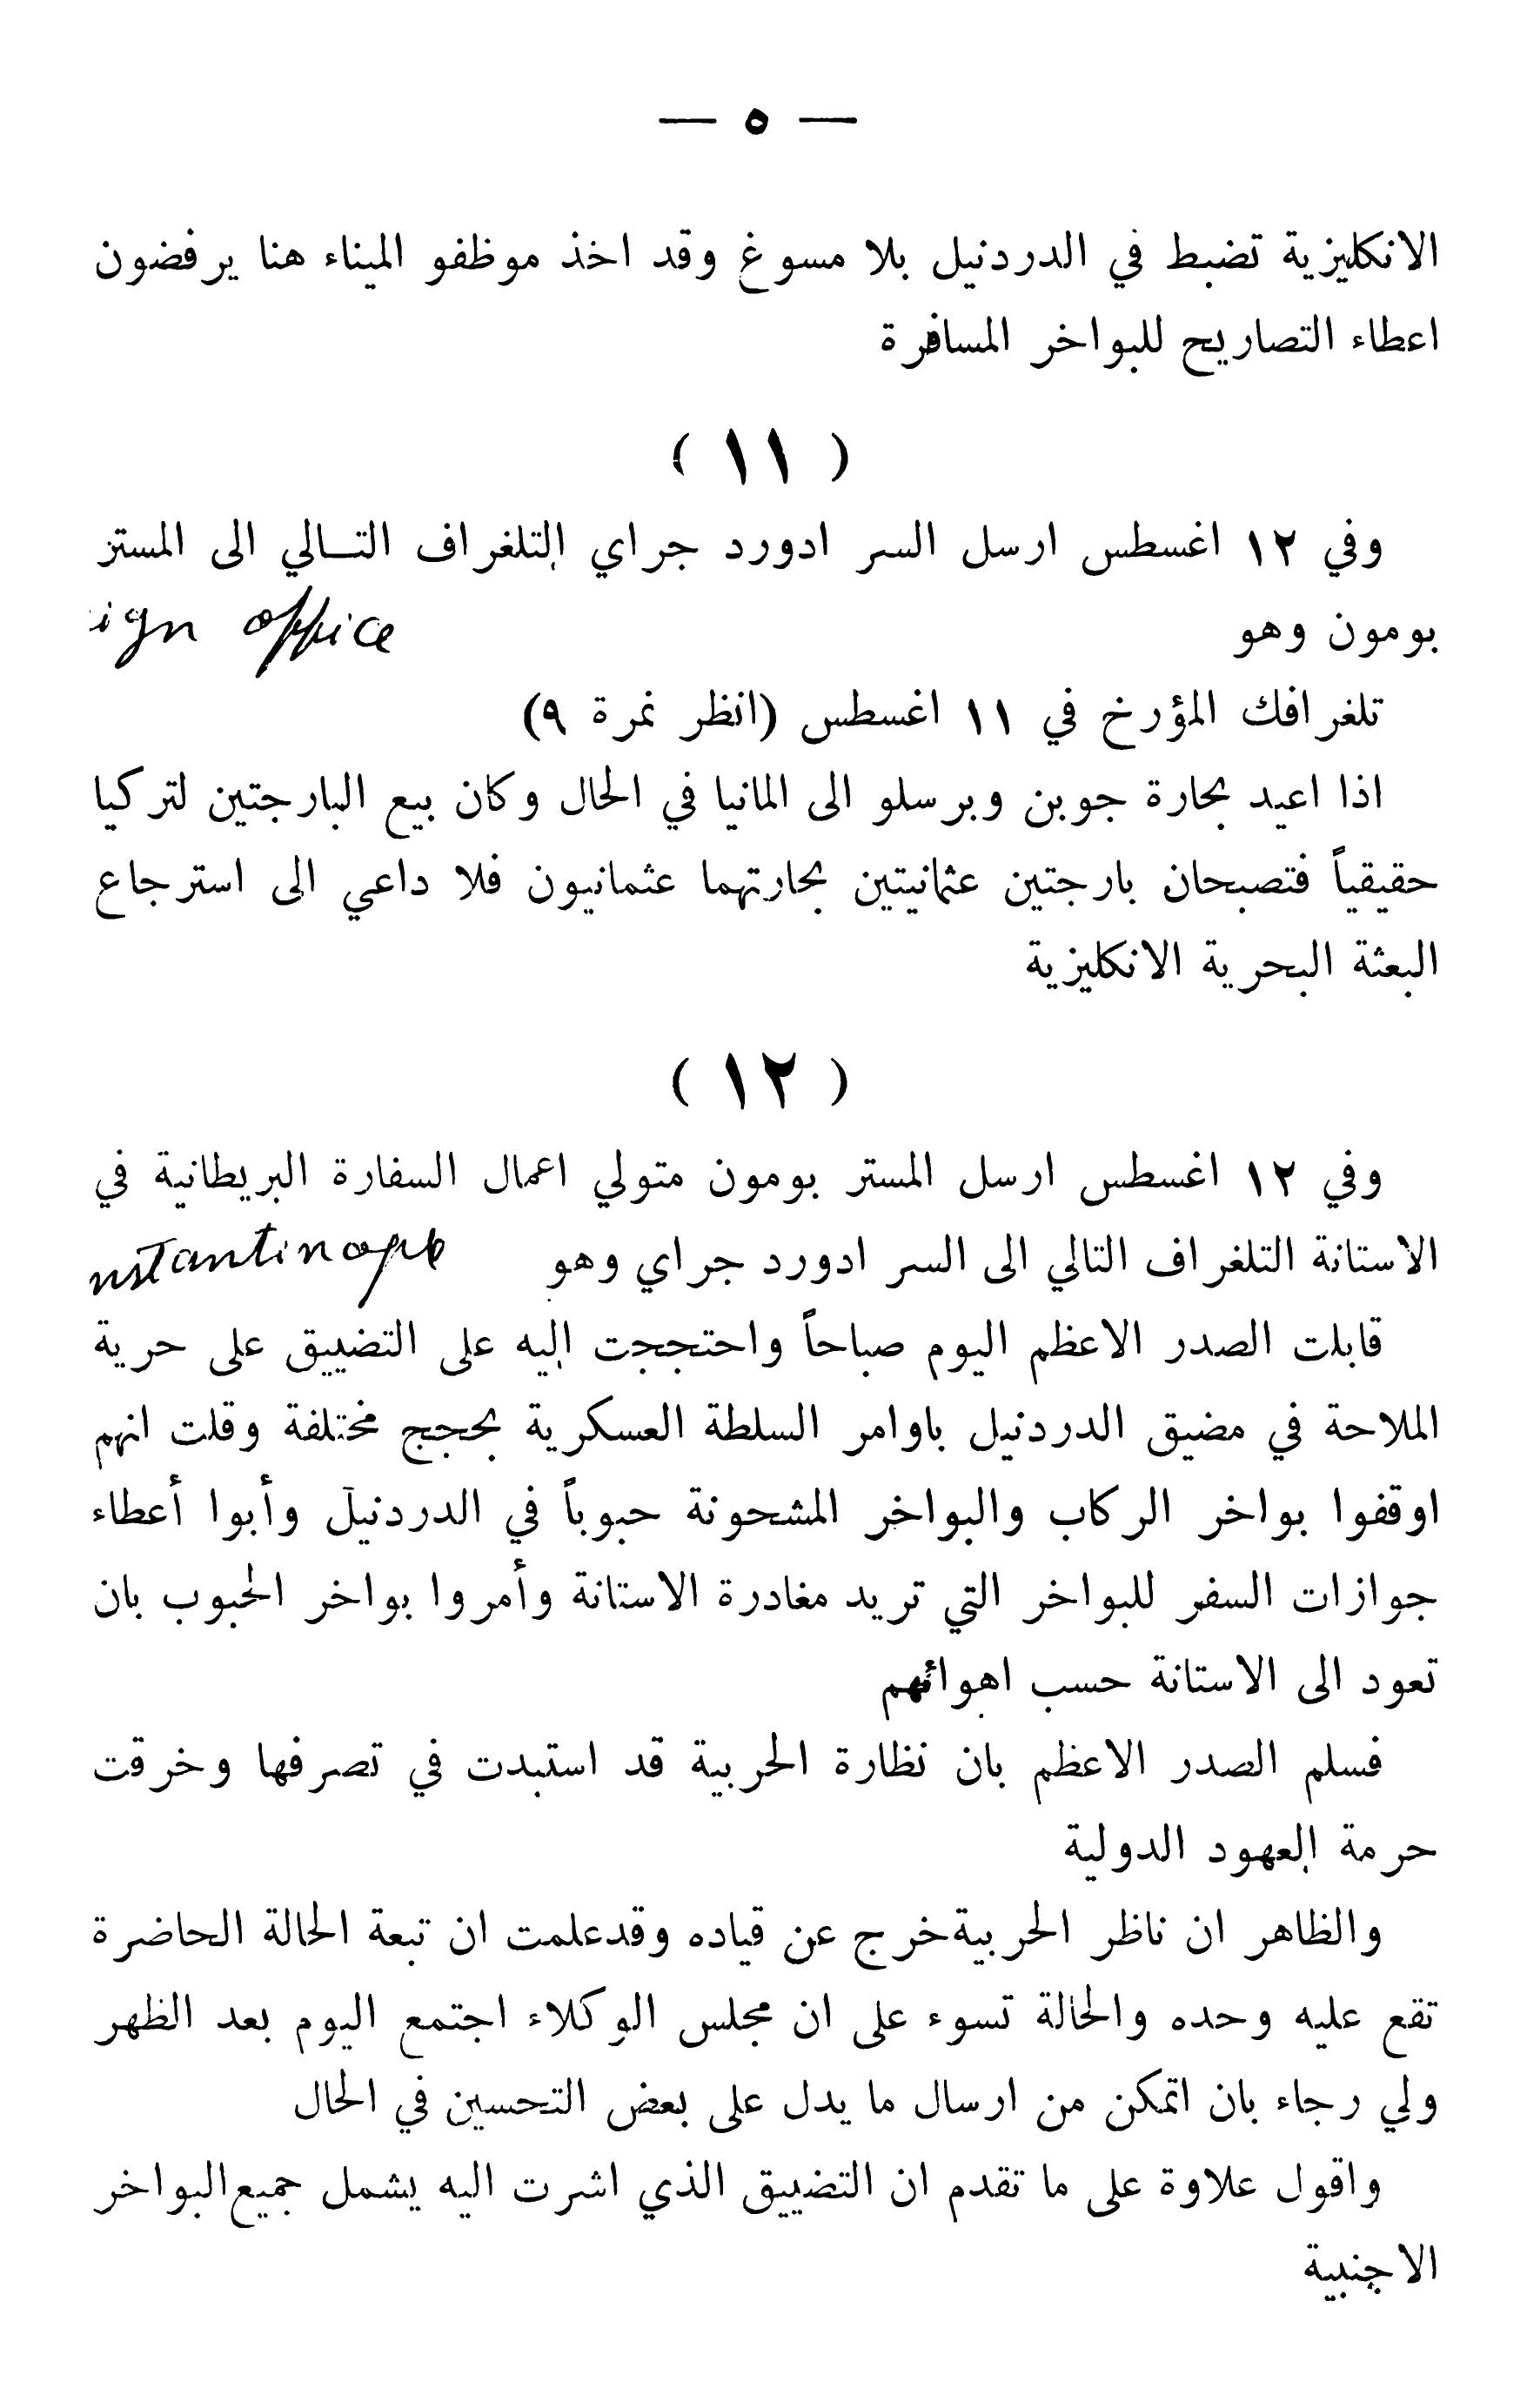 — ٥ —
الانكليزية تضبط في الدردنيل بلا مسوغ وقد اخذ موظفو الميناء هنا يرفضون
اعطاء التصاريح للبواخر المسافرة
( ١١ )
وفي ١٢ اغسطس ارسل السر ادورد جراي التلغراف التـالي الى المستر
بومون وهو ign office
تلغرافك المؤرخ في ١١ اغسطس (انظر نمرة ٩)
اذا اعيد بحارة جوبن وبرسلو الى المانيا في الحال وكان بيع البارجتين لتركيا
حقيقياً فتصبحان بارجتين عثمانيتين بحارتهما عثمانيون فلا داعي الى استرجاع
البعثة البحرية الانكليزية
( ١٢ )
وفي ١٢ اغسطس ارسل المستر بومون متولي اعمال السفارة البريطانية في
الاستانة التلغراف التالي الى السر ادورد جراي وهو nstantinople
قابلت الصدر الاعظم اليوم صباحاً واحتججت اليه على التضييق على حرية
الملاحة في مضيق الدردنيل باوامر السلطة العسكرية بحجج مختلفة وقلت انهم
اوقفوا بواخر الركاب والبواخر المشحونة حبوباً في الدردنيل وأبوا أعطاء
جوازات السفر للبواخر التي تريد مغادرة الاستانة وأمروا بواخر الحبوب بان
تعود الى الاستانة حسب اهوائهم
فسلم الصدر الاعظم بان نظارة الحربية قد استبدت في تصرفها وخرقت
حرمة العهود الدولية
والظاهر ان ناظر الحربية خرج عن قياده وقد علمت ان تبعة الحالة الحاضرة
تقع عليه وحده والحالة تسوء على ان مجلس الوكلاء اجتمع اليوم بعد الظهر
ولي رجاء بان اتمكن من ارسال ما يدل على بعض التحسين في الحال
واقول علاوة على ما تقدم ان التضييق الذي اشرت اليه يشمل جميع البواخر
الاجنبية